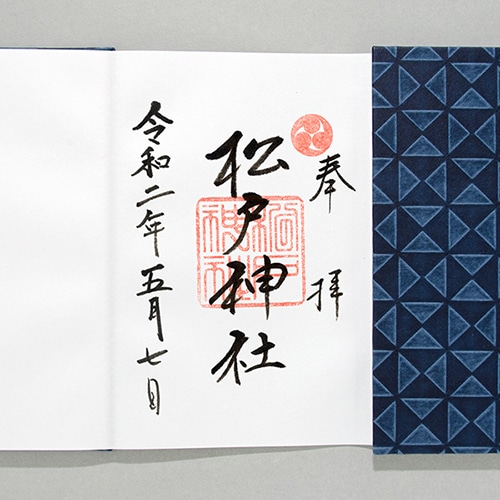 奉拝
松戸神社
松戸神社
令和二年五月七日